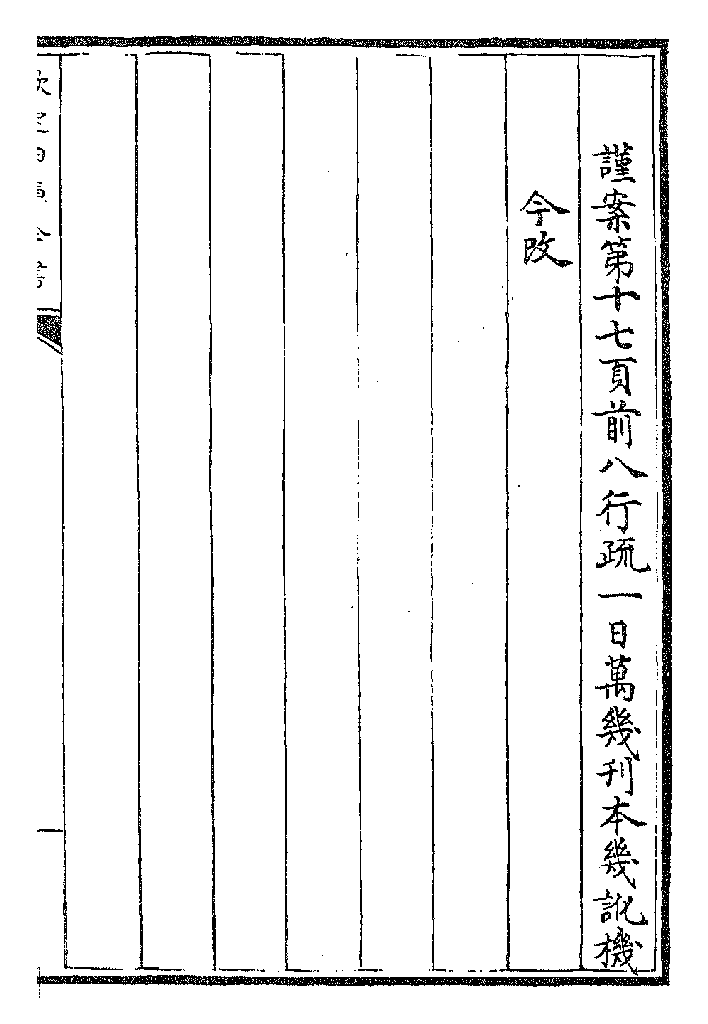 謹案第十七頁前八行疏一日萬幾刊本幾訛機
今改
欽定四庫全書